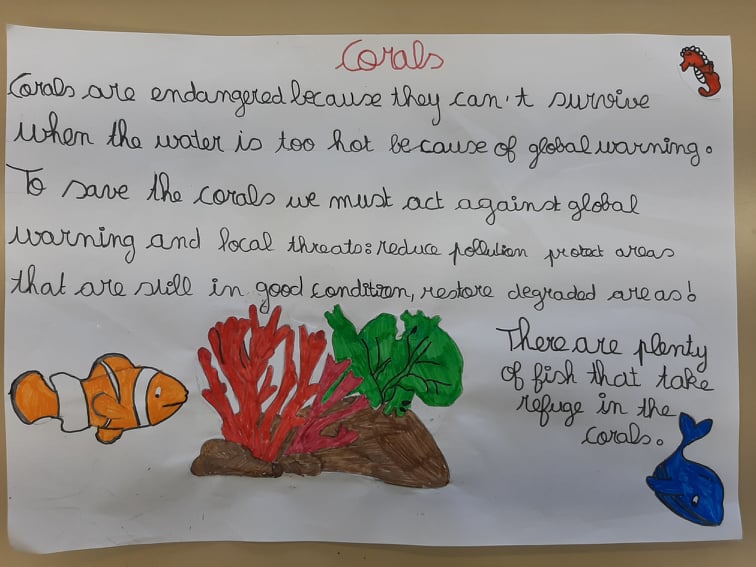 Corals
Corals are endangered because they can't survive
when the water is too hot because of global warning.
To save the corals we must act against global
warning and local threats: reduce pollution protect areas
that are still in good condition, restore degraded areas!
There are plenty
of fish that take
refuge in the
corals.